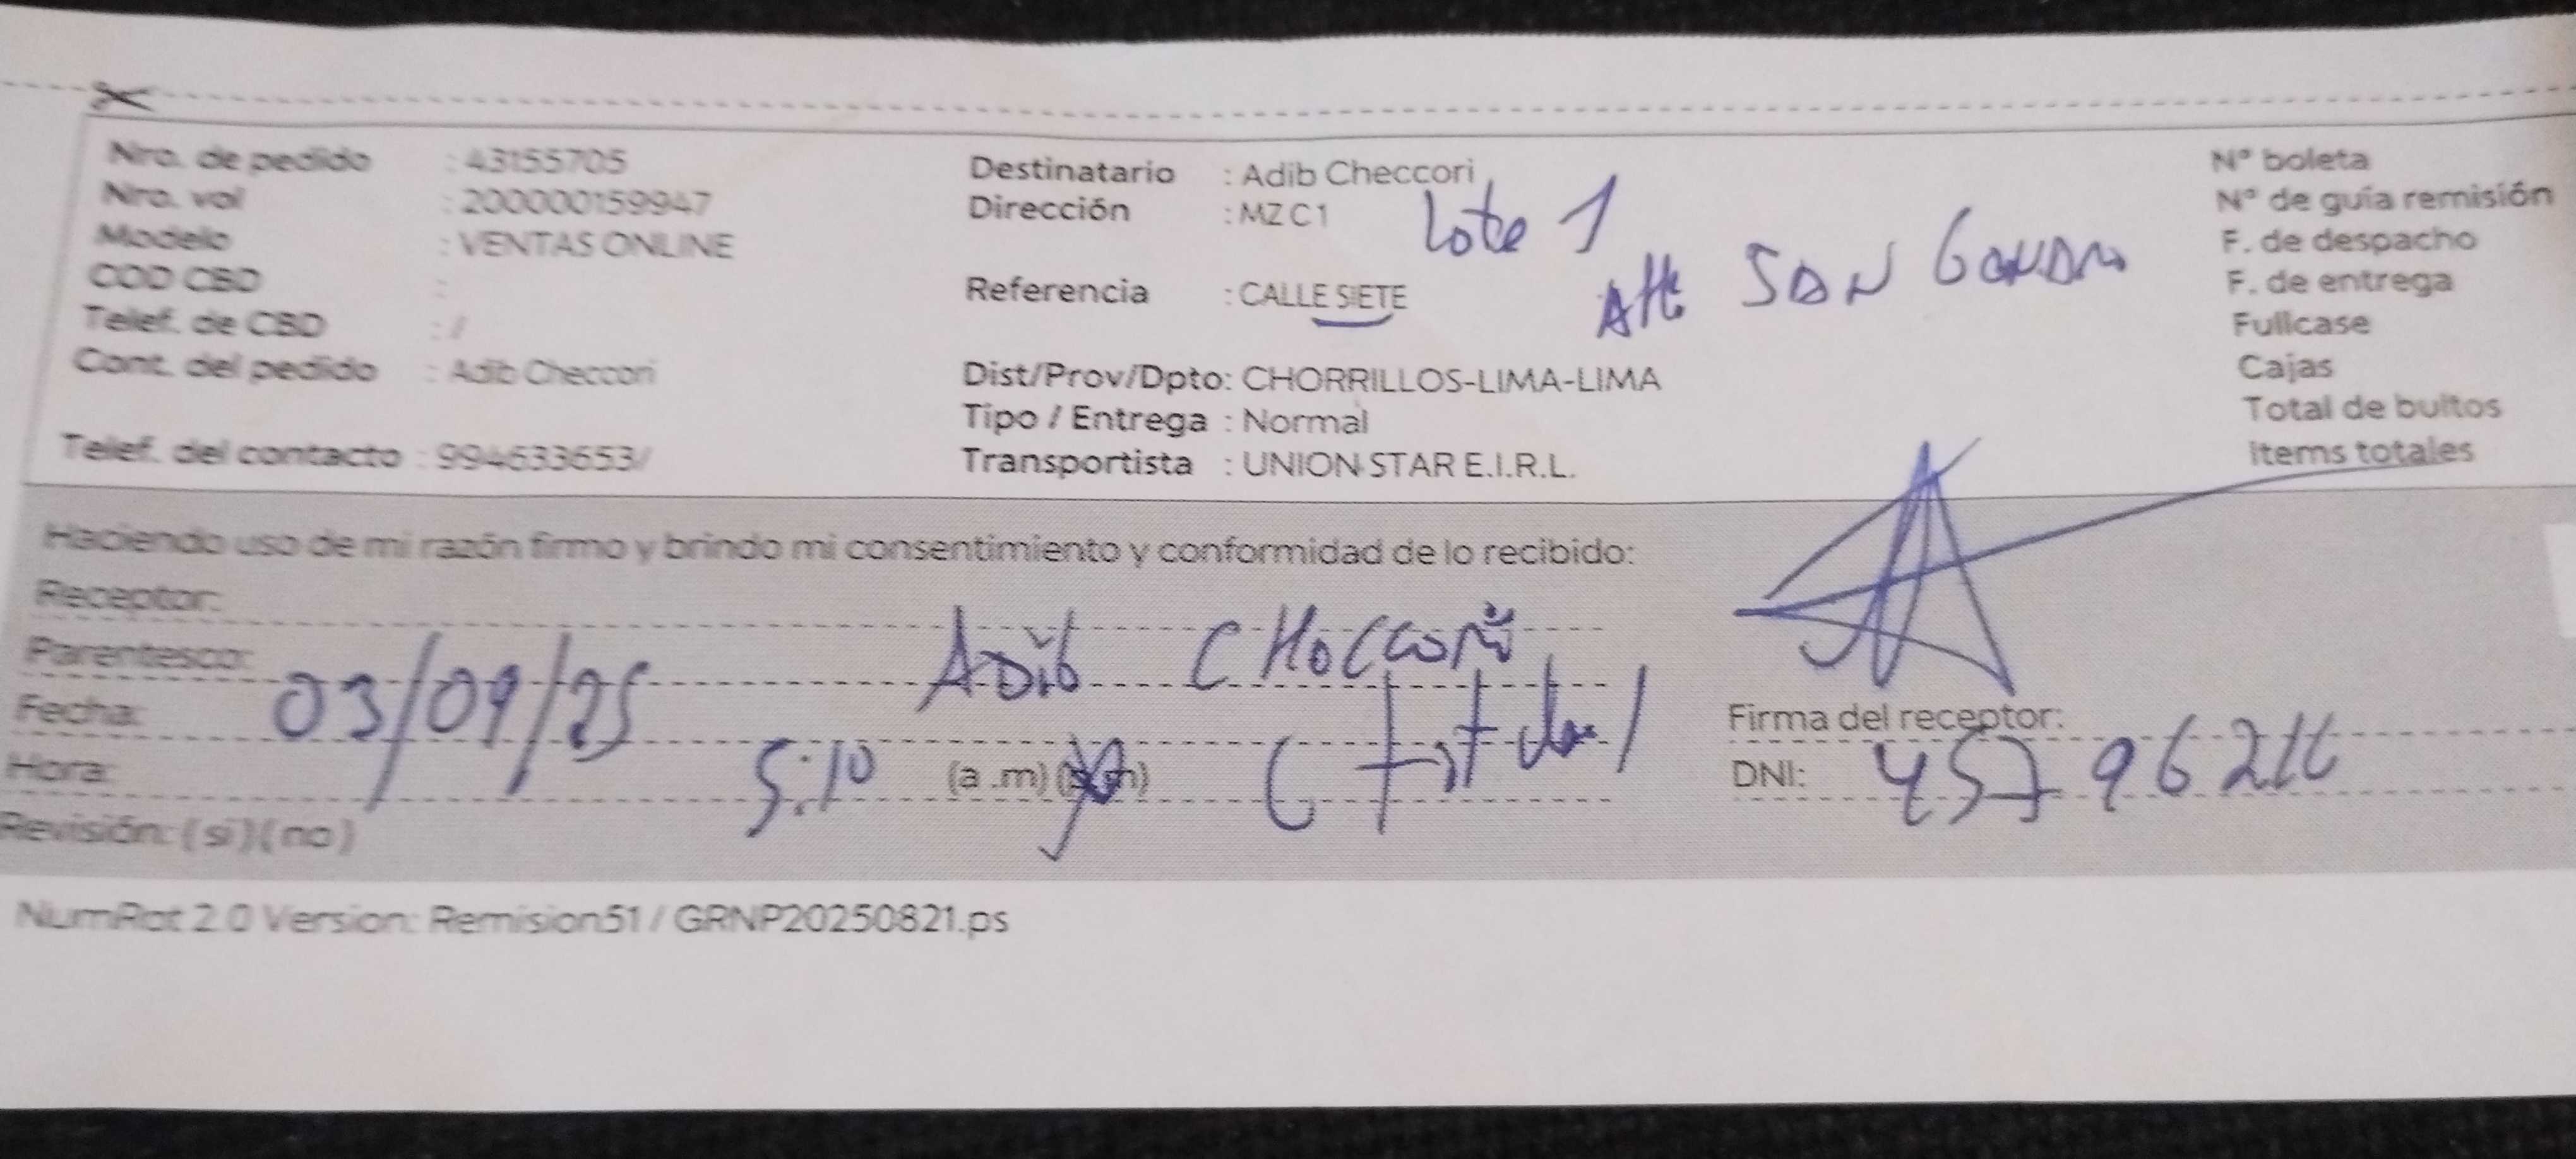 Nro. de pedido : 43155705
Nro. vol : 200000159947
Modelo : VENTAS ONLINE
COD CBD :
Telef. de CBD : /
Cont. del pedido : Adib Checcori
Telef. del contacto : 994633653/
Destinatario : Adib Checcori
Dirección : MZ C1 Lote 1
Referencia : CALLE SIETE SAN
Dist/Prov/Dpto: CHORRILLOS-LIMA-LIMA
Tipo / Entrega : Normal
Transportista : UNION STAR E.I.R.L.
N° boleta
N° de guía remisión
F. de despacho
F. de entrega
Fullcase
Cajas
Total de bultos
Items totales
Haciendo uso de mi razón firmo y brindo mi consentimiento y conformidad de lo recibido:
Receptor:
Parentesco: Adib
Fecha: 03/09/25
Hora: 5:10 (a .m) (p.m)
Revisión: (si) (no)
Firma del receptor:
DNI:
NumRot 2.0 Version: Remision51 / GRNP20250821.ps